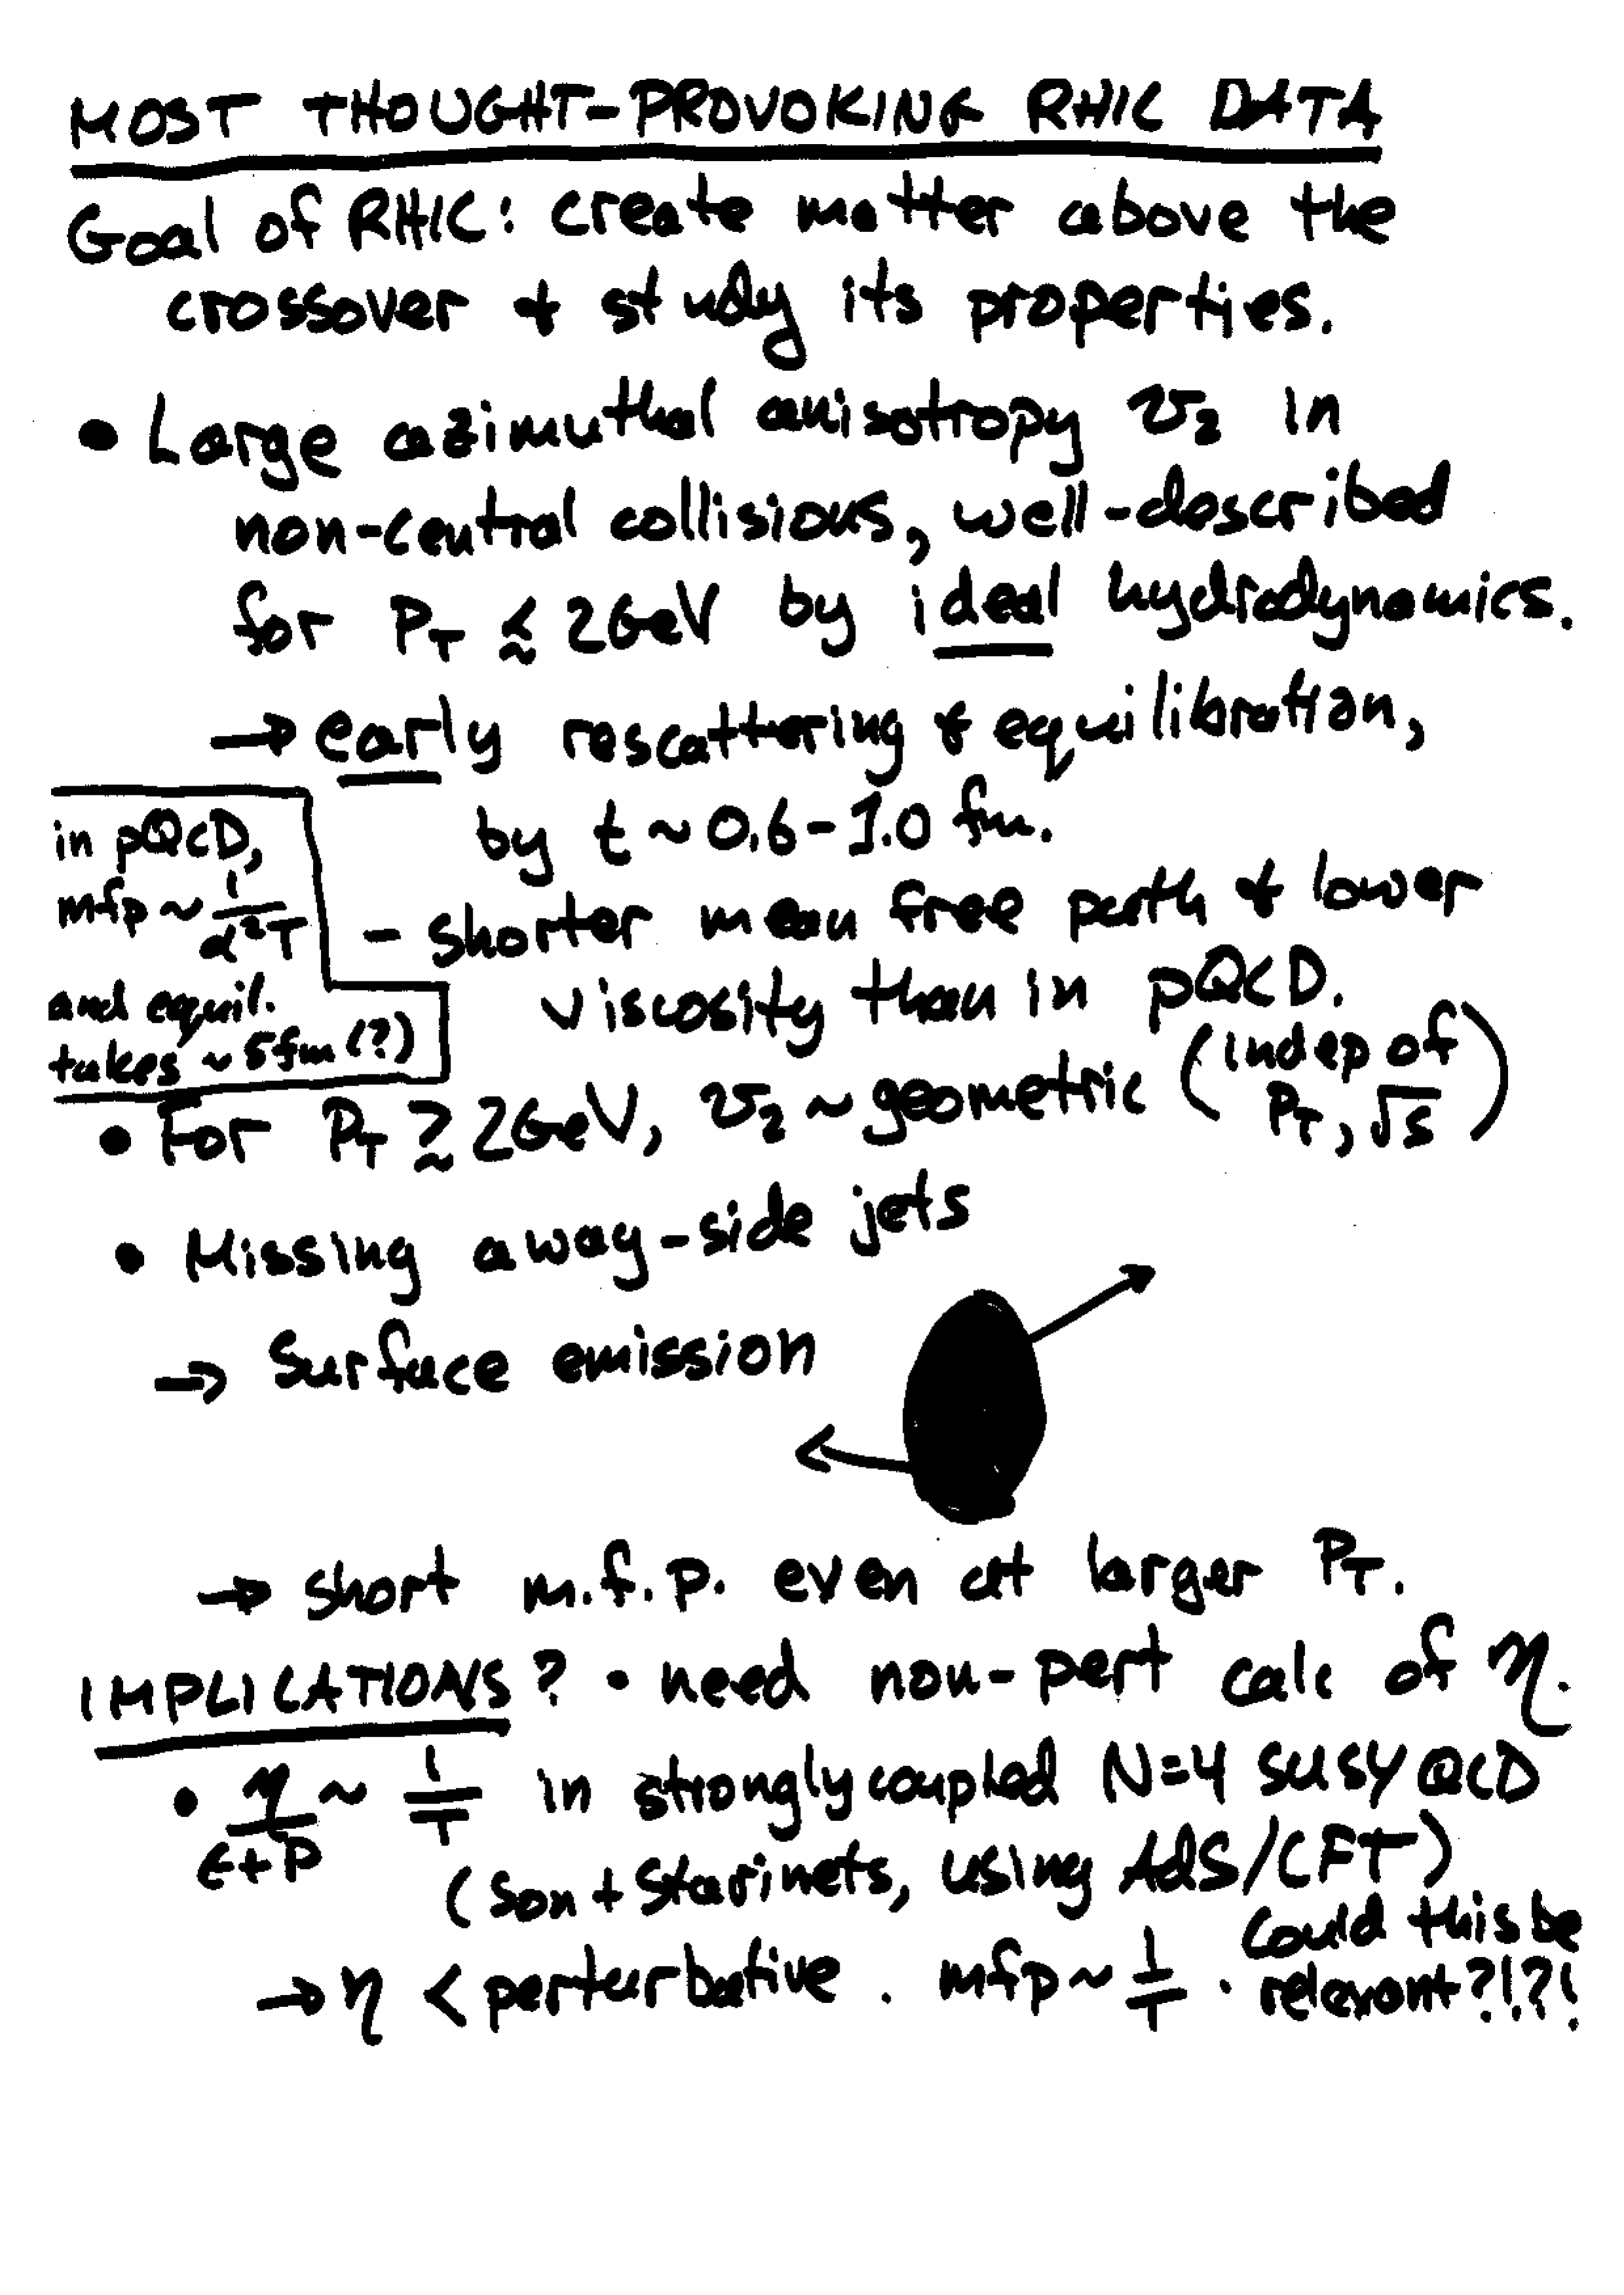 MOST THOUGHT-PROVOKING RHIC DATA
Goal of RHIC: create matter above the
crossover & study its properties.
• Large azimuthal anisotropy v₂ in
non-central collisions, well-described
for P_T ≲ 2GeV by ideal hydrodynamics.
→ early rescattering & equilibration,
by t ~ 0.6-1.0 fm.
in pQCD,
mfp ~ 1/α²T
and equil.
takes ~ 5fm (?)
- shorter mean free path & lower
viscosity than in pQCD.
• For P_T ≳ 2GeV, v₂ ~ geometric (indep of P_T, √s)
• Missing away-side jets
→ Surface emission
→ short m.f.p. even at larger P_T.
IMPLICATIONS? • need non-pert calc of η.
• η/(ε+P) ~ 1/T in strongly coupled N=4 SUSY QCD
(Son + Starinets, using AdS/CFT)
→ η < perturbative. mfp ~ 1/T. Could this be relevant?!?!